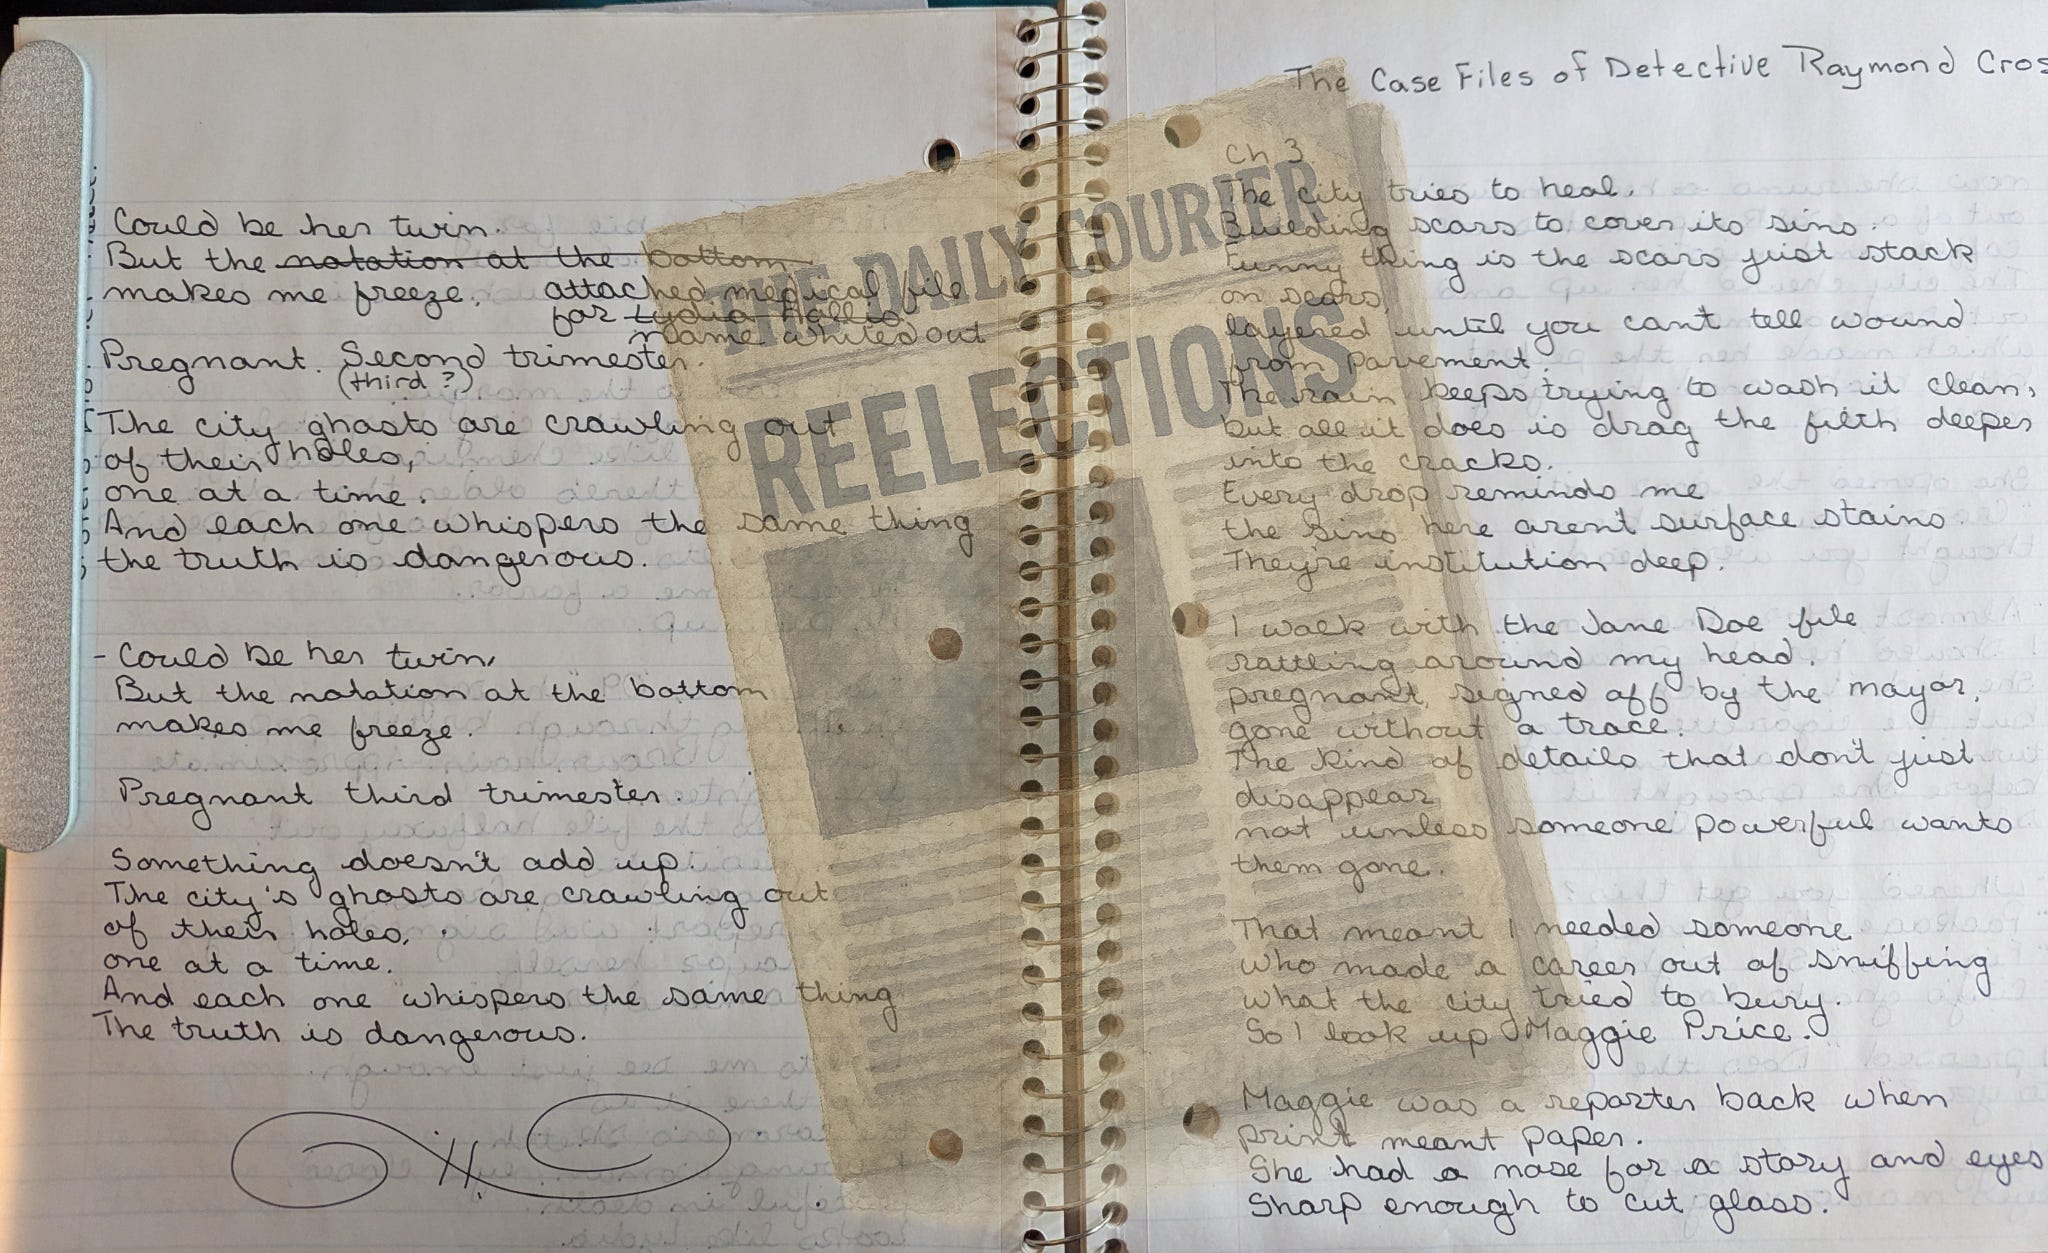 Could be her twin.
But the notation at the bottom
makes me freeze. attached medical file
for Lydia Hollis
name whited out
Pregnant. Second trimester.
(third ?)
The city ghosts are crawling out
of their holes,
one at a time.
And each one whispers the same thing
the truth is dangerous.
- Could be her twin,
But the notation at the bottom
makes me freeze.
Pregnant third trimester.
Something doesn't add up.
The city's ghosts are crawling out
of their holes,
one at a time.
And each one whispers the same thing
The truth is dangerous.
THE DAILY COURIER
REELECTIONS
The Case Files of Detective Raymond Cros
Ch 3
The city tries to heal.
Building scars to cover its sins.
Funny thing is the scars just stack
on scars,
layered until you can't tell wound
from pavement.
The rain keeps trying to wash it clean,
but all it does is drag the filth deeper
into the cracks.
Every drop reminds me
the sins here aren't surface stains.
They're institution deep.
I walk with the Jane Doe file
rattling around my head.
pregnant, signed off by the mayor,
gone without a trace.
The kind of details that don't just
disappear
not unless someone powerful wants
them gone.
That meant I needed someone
who made a career out of sniffing
what the city tried to bury.
So I look up Maggie Price.
Maggie was a reporter back when
print meant paper.
She had a nose for a story and eyes
Sharp enough to cut glass.